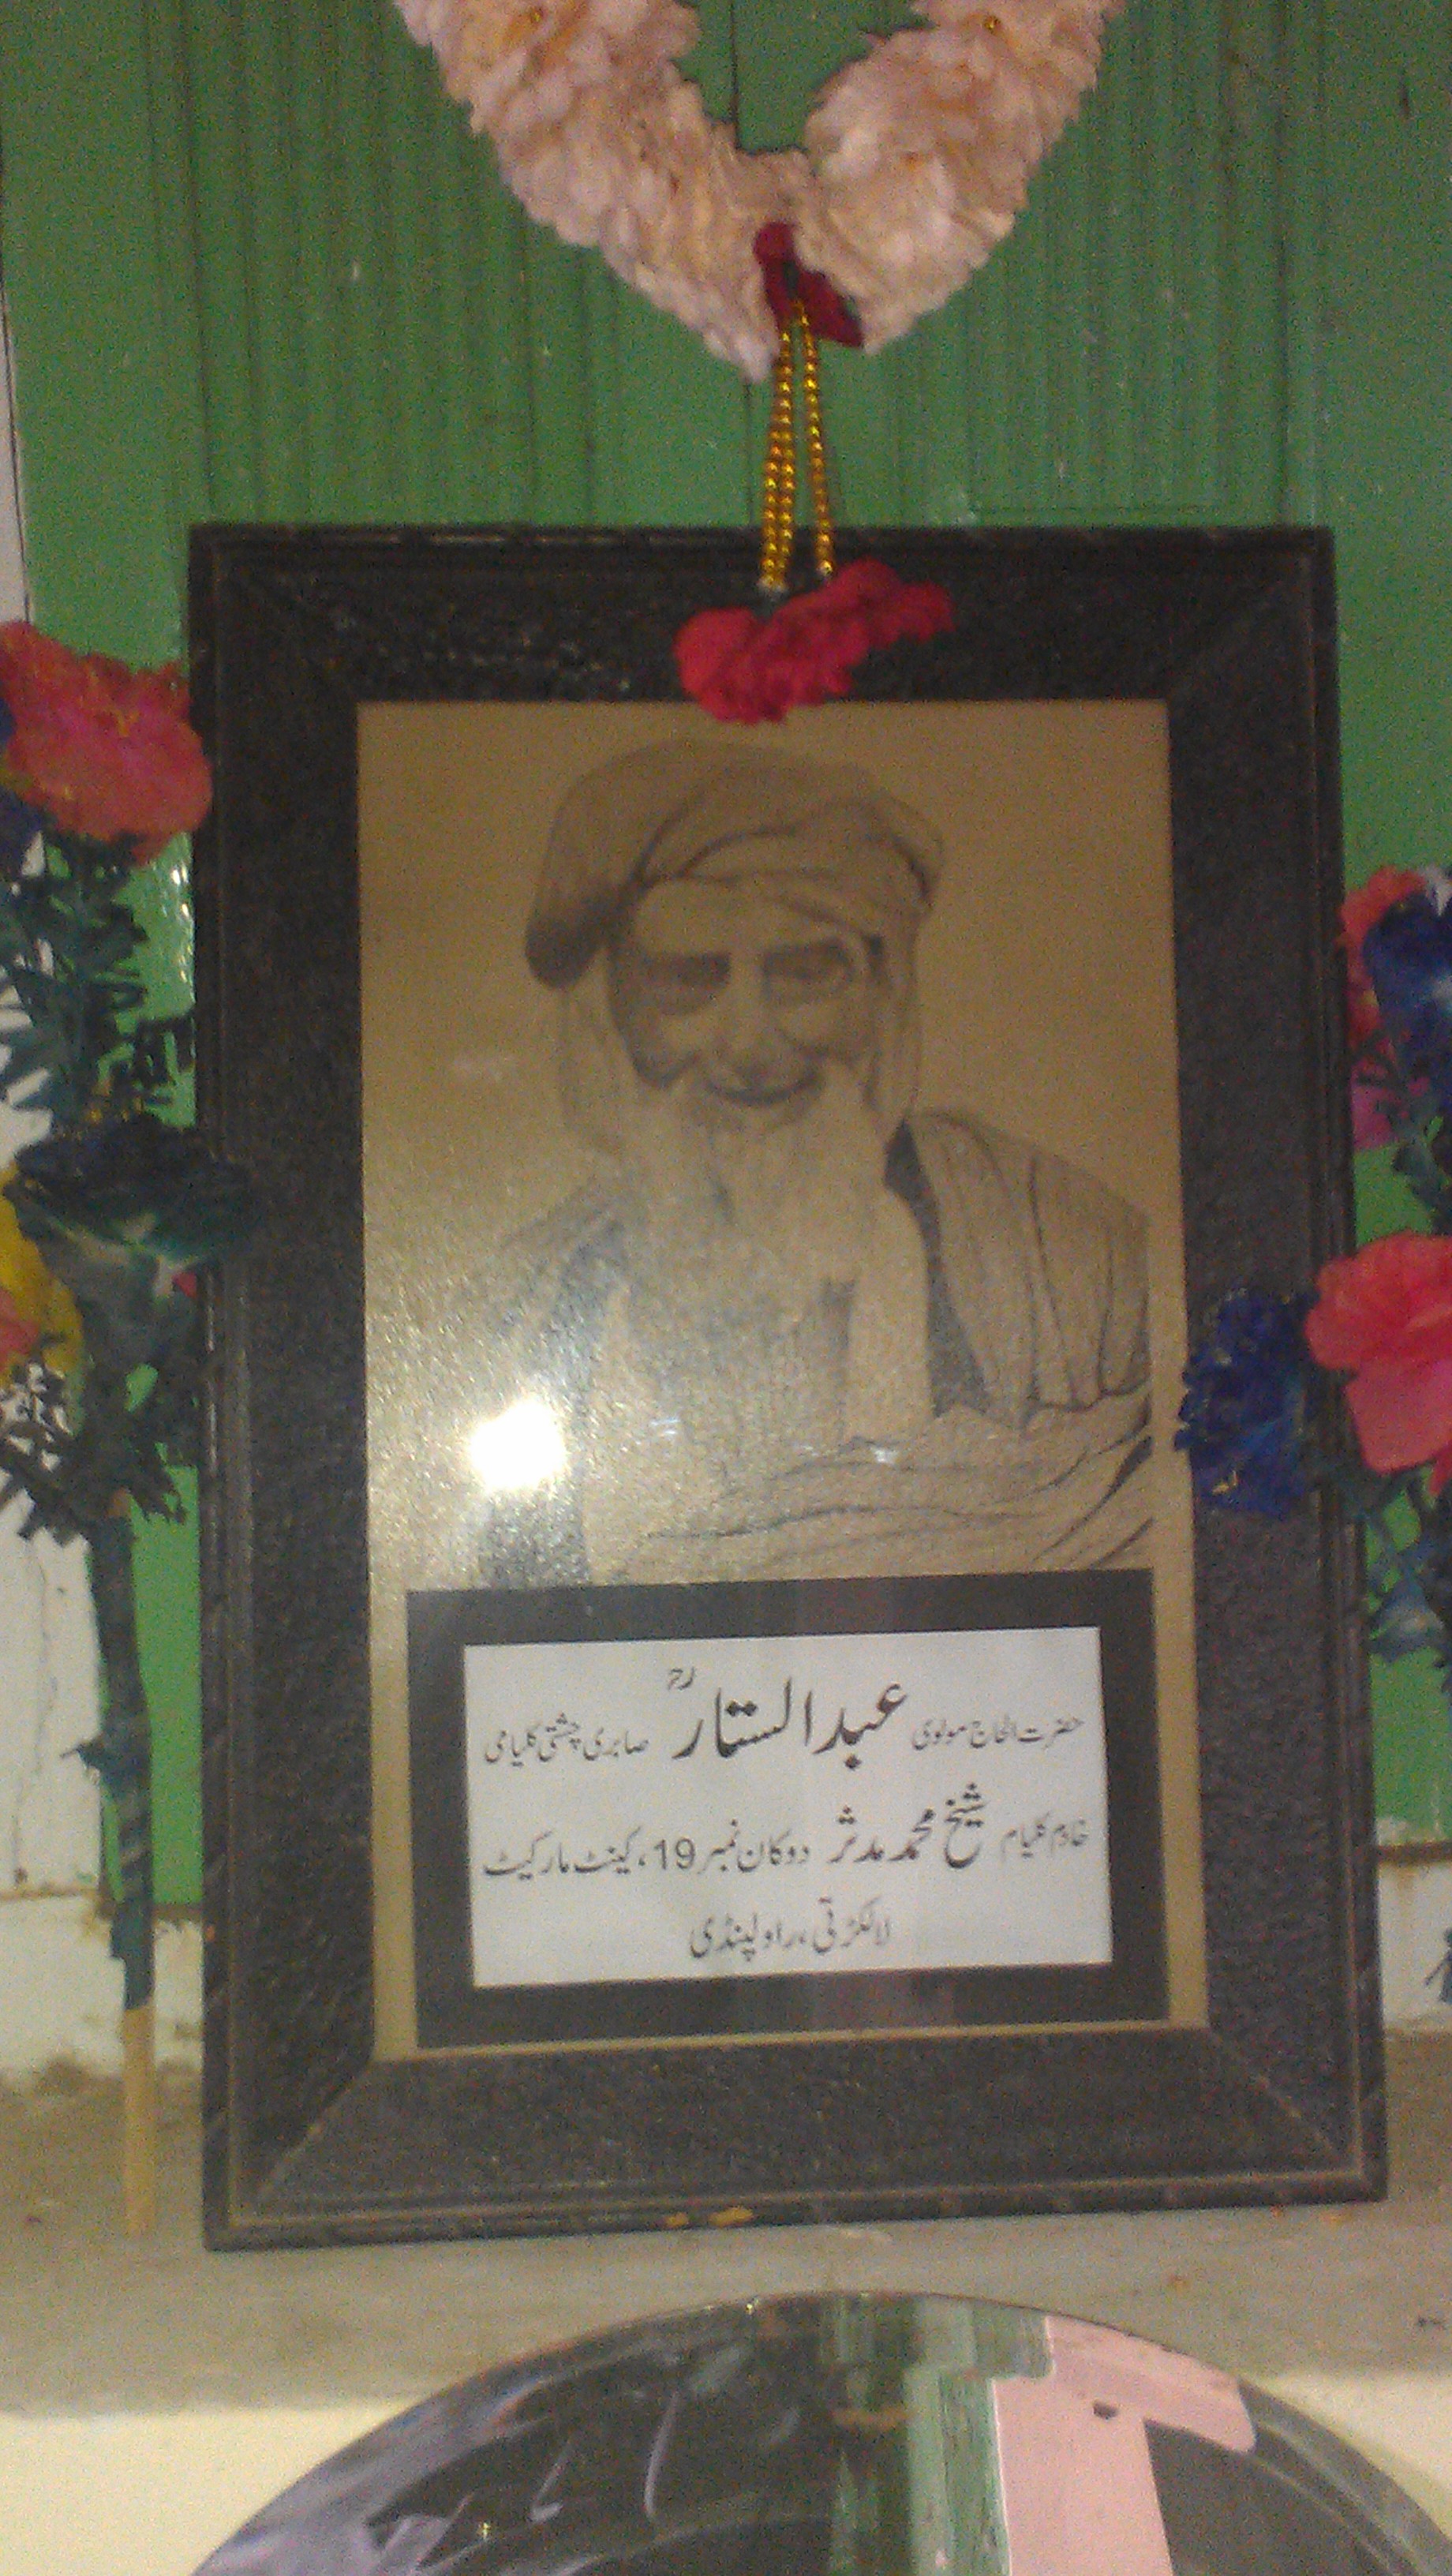 حضرت الحاج مولوی عبدالستارؒ صابری چشتی کلیامی
خادم کلیام شیخ محمد مدثر دوکان نمبر 19، کینٹ مارکیٹ
لالکڑتی، راولپنڈی